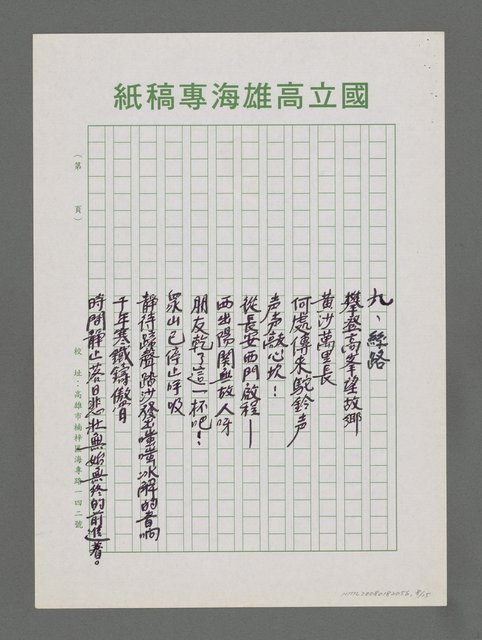 國立高雄海專稿紙
(第　頁)
九、絲路
攀登高峯望故鄉
黃沙萬里長
何處傳來駝鈴声
声声敲心坎！
從長安西門啟程—
西出陽関無故人呀
朋友乾了這一杯吧！
眾山已停止呼吸
靜待蹄聲踏沙發出嗤嗤冰解的音响
千年寒鐵鑄傲骨
時間靜止若日悲壯無始無終的前進着。
校址：高雄市楠梓區海專路一四二號
NMTL20080182056, 8/15